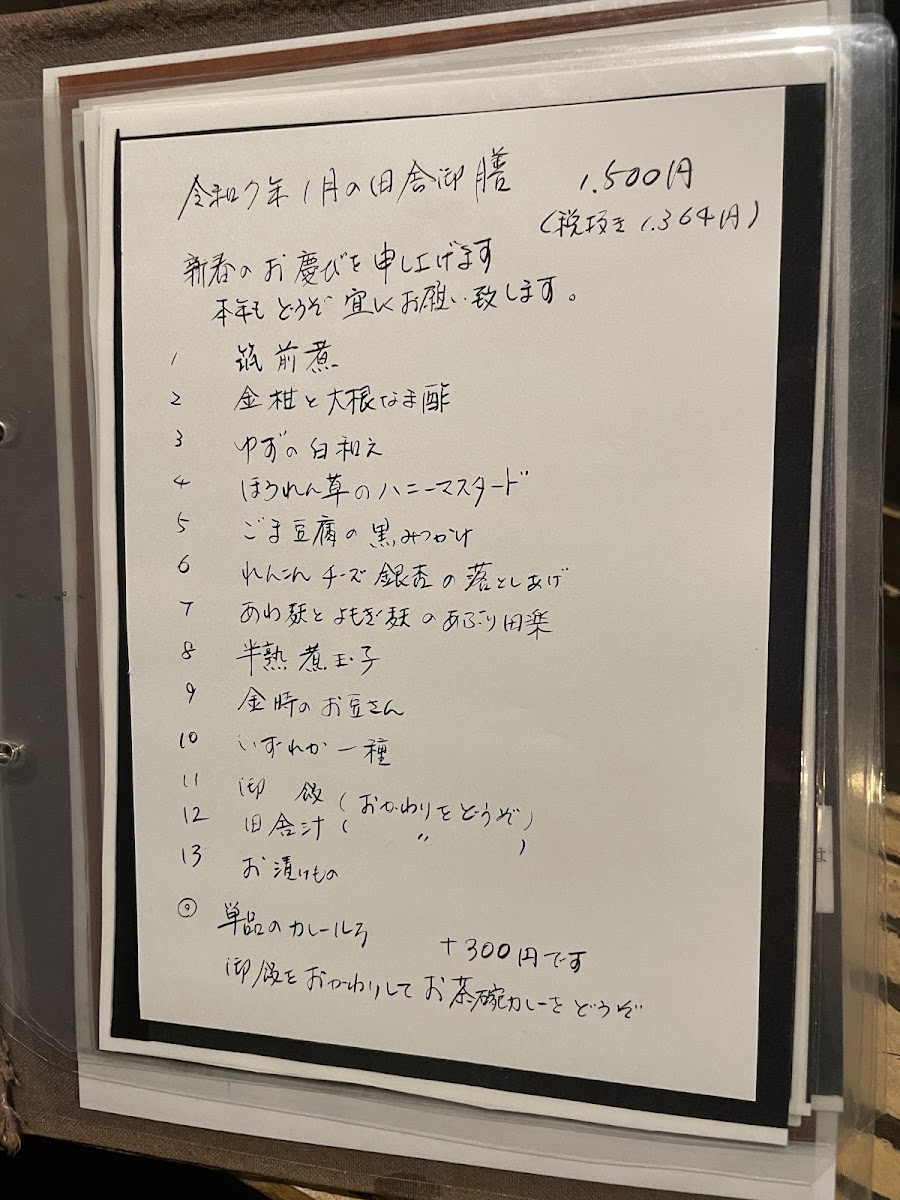 令和7年1月の田舎御膳 1.500円
(税抜き 1.364円)
新春のお慶びを申し上げます
本年もどうぞ宜しくお願い致します。
1 筑前煮
2 金柑と大根なま酢
3 ゆずの白和え
4 ほうれん草のハニーマスタード
5 ごま豆腐の黒みつかけ
6 れんこんチーズ銀杏の落としあげ
7 あわ麩とよもぎ麩のあぶり田楽
8 半熟煮玉子
9 金時のお豆さん
10 いずれか一種
11 御飯(おかわりをどうぞ)
12 田舎汁( 〃 )
13 お漬けもの
◎ 単品のカレールう +300円です
御飯をおかわりしてお茶碗カレーをどうぞ